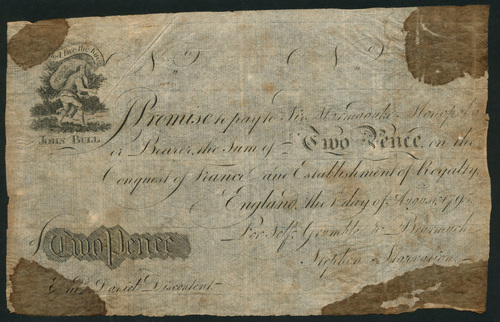 No No
JOHN BULL
I Promise to pay to Sir Marmaduke Monopoly
or Bearer, the Sum of Two Pence, on the
Conquest of France and Establishment of Royalty,
England, the 1 day of August 179
For Self, Grumble & Bearmuch
Stephen Starvation
Two Pence
Entd. Daniel Discontent